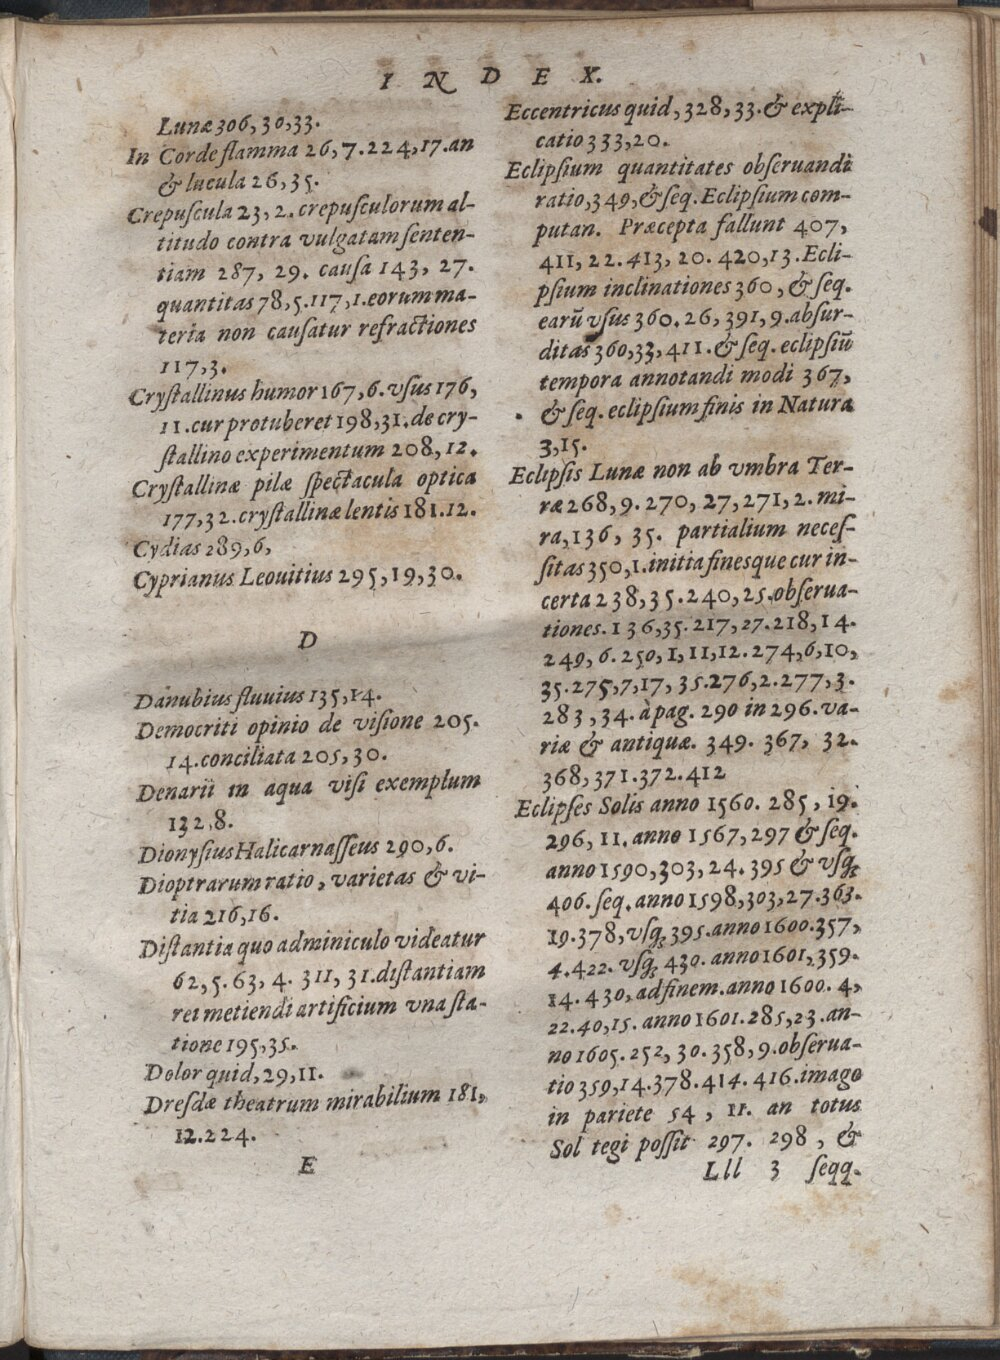 INDEX.
Lunæ 306, 30, 33.
In Corde flamma 26, 7. 224, 17. an
& lucula 26, 35.
Crepuſcula 23, 2. crepuſculorum al-
titudo contra vulgatam ſenten-
tiam 287, 29. cauſa 143, 27.
quantitas 78, 5. 117, 1. eorum ma-
teria non cauſatur refractiones
117, 3.
Cryſtallinus humor 167, 6. vſus 176,
11. cur protuberet 198, 31. de cry-
ſtallino experimentum 208, 12.
Cryſtallinæ pilæ ſpectacula optica
177, 32. cryſtallinæ lentis 181. 12.
Cydias 289, 6,
Cyprianus Leouitius 295, 19, 30.
D
Danubius fluuius 135, 14.
Democriti opinio de viſione 205.
14. conciliata 205, 30.
Denarii in aqua viſi exemplum
132, 8.
Dionyſius Halicarnaſſeus 290, 6.
Dioptrarum ratio, varietas & vi-
tia 216, 16.
Diſtantia quo adminiculo videatur
62, 5. 63, 4. 311, 31. diſtantiam
rei metiendi artificium vna ſta-
tione 195, 35.
Dolor quid, 29, 11.
Dreſdæ theatrum mirabilium 181,
12. 224.
E
Eccentricus quid, 328, 33. & expli-
catio 333, 20.
Eclipſium quantitates obſeruandi
ratio, 349, & ſeq. Eclipſium com-
putan. Præcepta fallunt 407,
411, 22. 413, 20. 420, 13. Ecli-
pſium inclinationes 360, & ſeq.
earū vſus 360. 26, 391, 9. abſur-
ditas 360, 33, 411. & ſeq. eclipſiū
tempora annotandi modi 367,
& ſeq. eclipſium finis in Natura
3, 15.
Eclipſis Lunæ non ab vmbra Ter-
ræ 268, 9. 270, 27, 271, 2. mi-
ra, 136, 35. partialium neceſ-
ſitas 350, 1. initia finesque cur in-
certa 238, 35. 240, 25. obſerua-
tiones. 136, 35. 217, 27. 218, 14.
249, 6. 250, 1, 11, 12. 274, 6, 10,
35. 275, 7, 17, 35. 276, 2. 277, 3.
283, 34. à pag. 290 in 296. va-
riæ & antiquæ. 349. 367, 32.
368, 371. 372. 412
Eclipſes Solis anno 1560. 285, 19.
296, 11. anno 1567, 297 & ſeq.
anno 1590, 303, 24. 395 & vſq;
406. ſeq. anno 1598, 303, 27. 363.
19. 378, vſq; 395. anno 1600. 357,
4. 422. vſq; 430. anno 1601, 359.
14. 430, ad finem. anno 1600. 4,
22. 40, 15. anno 1601. 285, 23. an-
no 1605. 252, 30. 358, 9. obſerua-
tio 359, 14. 378. 414. 416. imago
in pariete 54, 11. an totus
Sol tegi poſſit 297. 298, &
Lll 3 ſeqq.